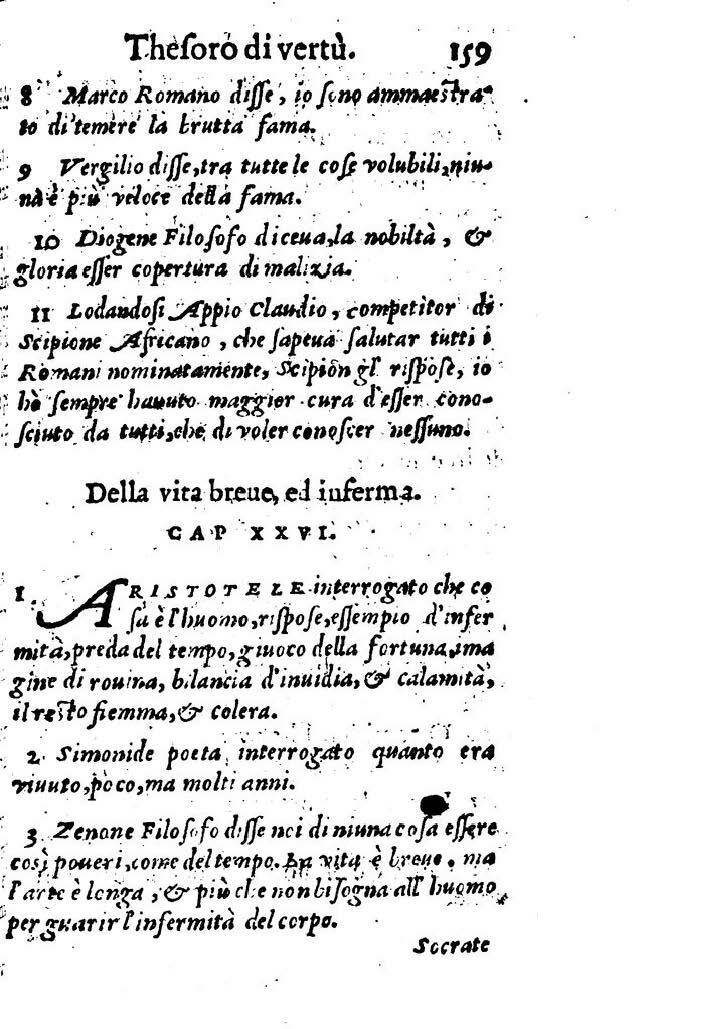 Theſoro di vertù. 159
8 Marco Romano diſſe, io ſono ammaeſtra-
to di temere la brutta fama.
9 Vergilio diſſe, tra tutte le coſe volubili, niu-
na è più veloce della fama.
10 Diogene Filoſofo diceua, la nobiltà, &
gloria eſſer copertura di malizia.
11 Lodandoſi Appio Claudio, competitor di
Scipione Africano, che ſapeua ſalutar tutti i
Romani nominatamente, Scipion gl' riſpoſe, io
hò ſempre hauuto maggior cura d'eſſer cono-
ſciuto da tutti, che di voler conoſcer neſſuno.
Della vita breue, ed inferma.
CAP XXVI.
1. ARISTOTELE interrogato che co
ſa è l'huomo, riſpoſe, eſſempio d'infer
mità, preda del tempo, giuoco della fortuna, ima
gine di rouina, bilancia d'inuidia, & calamità,
il reſto fiemma, & colera.
2. Simonide poeta interrogato quanto era
viuuto, poco, ma molti anni.
3 Zenone Filoſofo diſſe noi di niuna coſa eſſere
così poueri, come del tempo. La vita è breue, ma
l'arte è longa, & più che non biſogna all' huomo
per guarir l'infermità del corpo.
Socrate